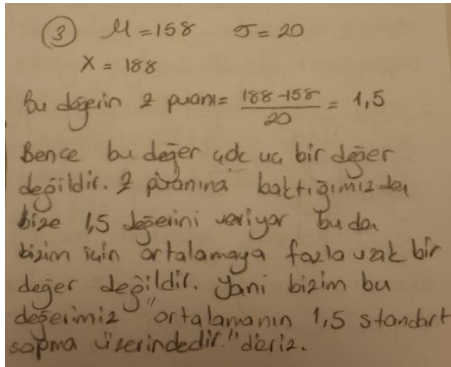 ③ M=158 σ=20
X = 188
Bu değerin z puanı= 188-158/20 = 1,5
Bence bu değer çok uç bir değer
değildir. z puanına baktığımızda
bize 1,5 değerini veriyor buda
bizim için ortalamaya fazla uzak bir
değer değildir. Yani bizim bu
değerimiz "ortalamanın 1,5 standart
sapma üzerindedir." deriz.